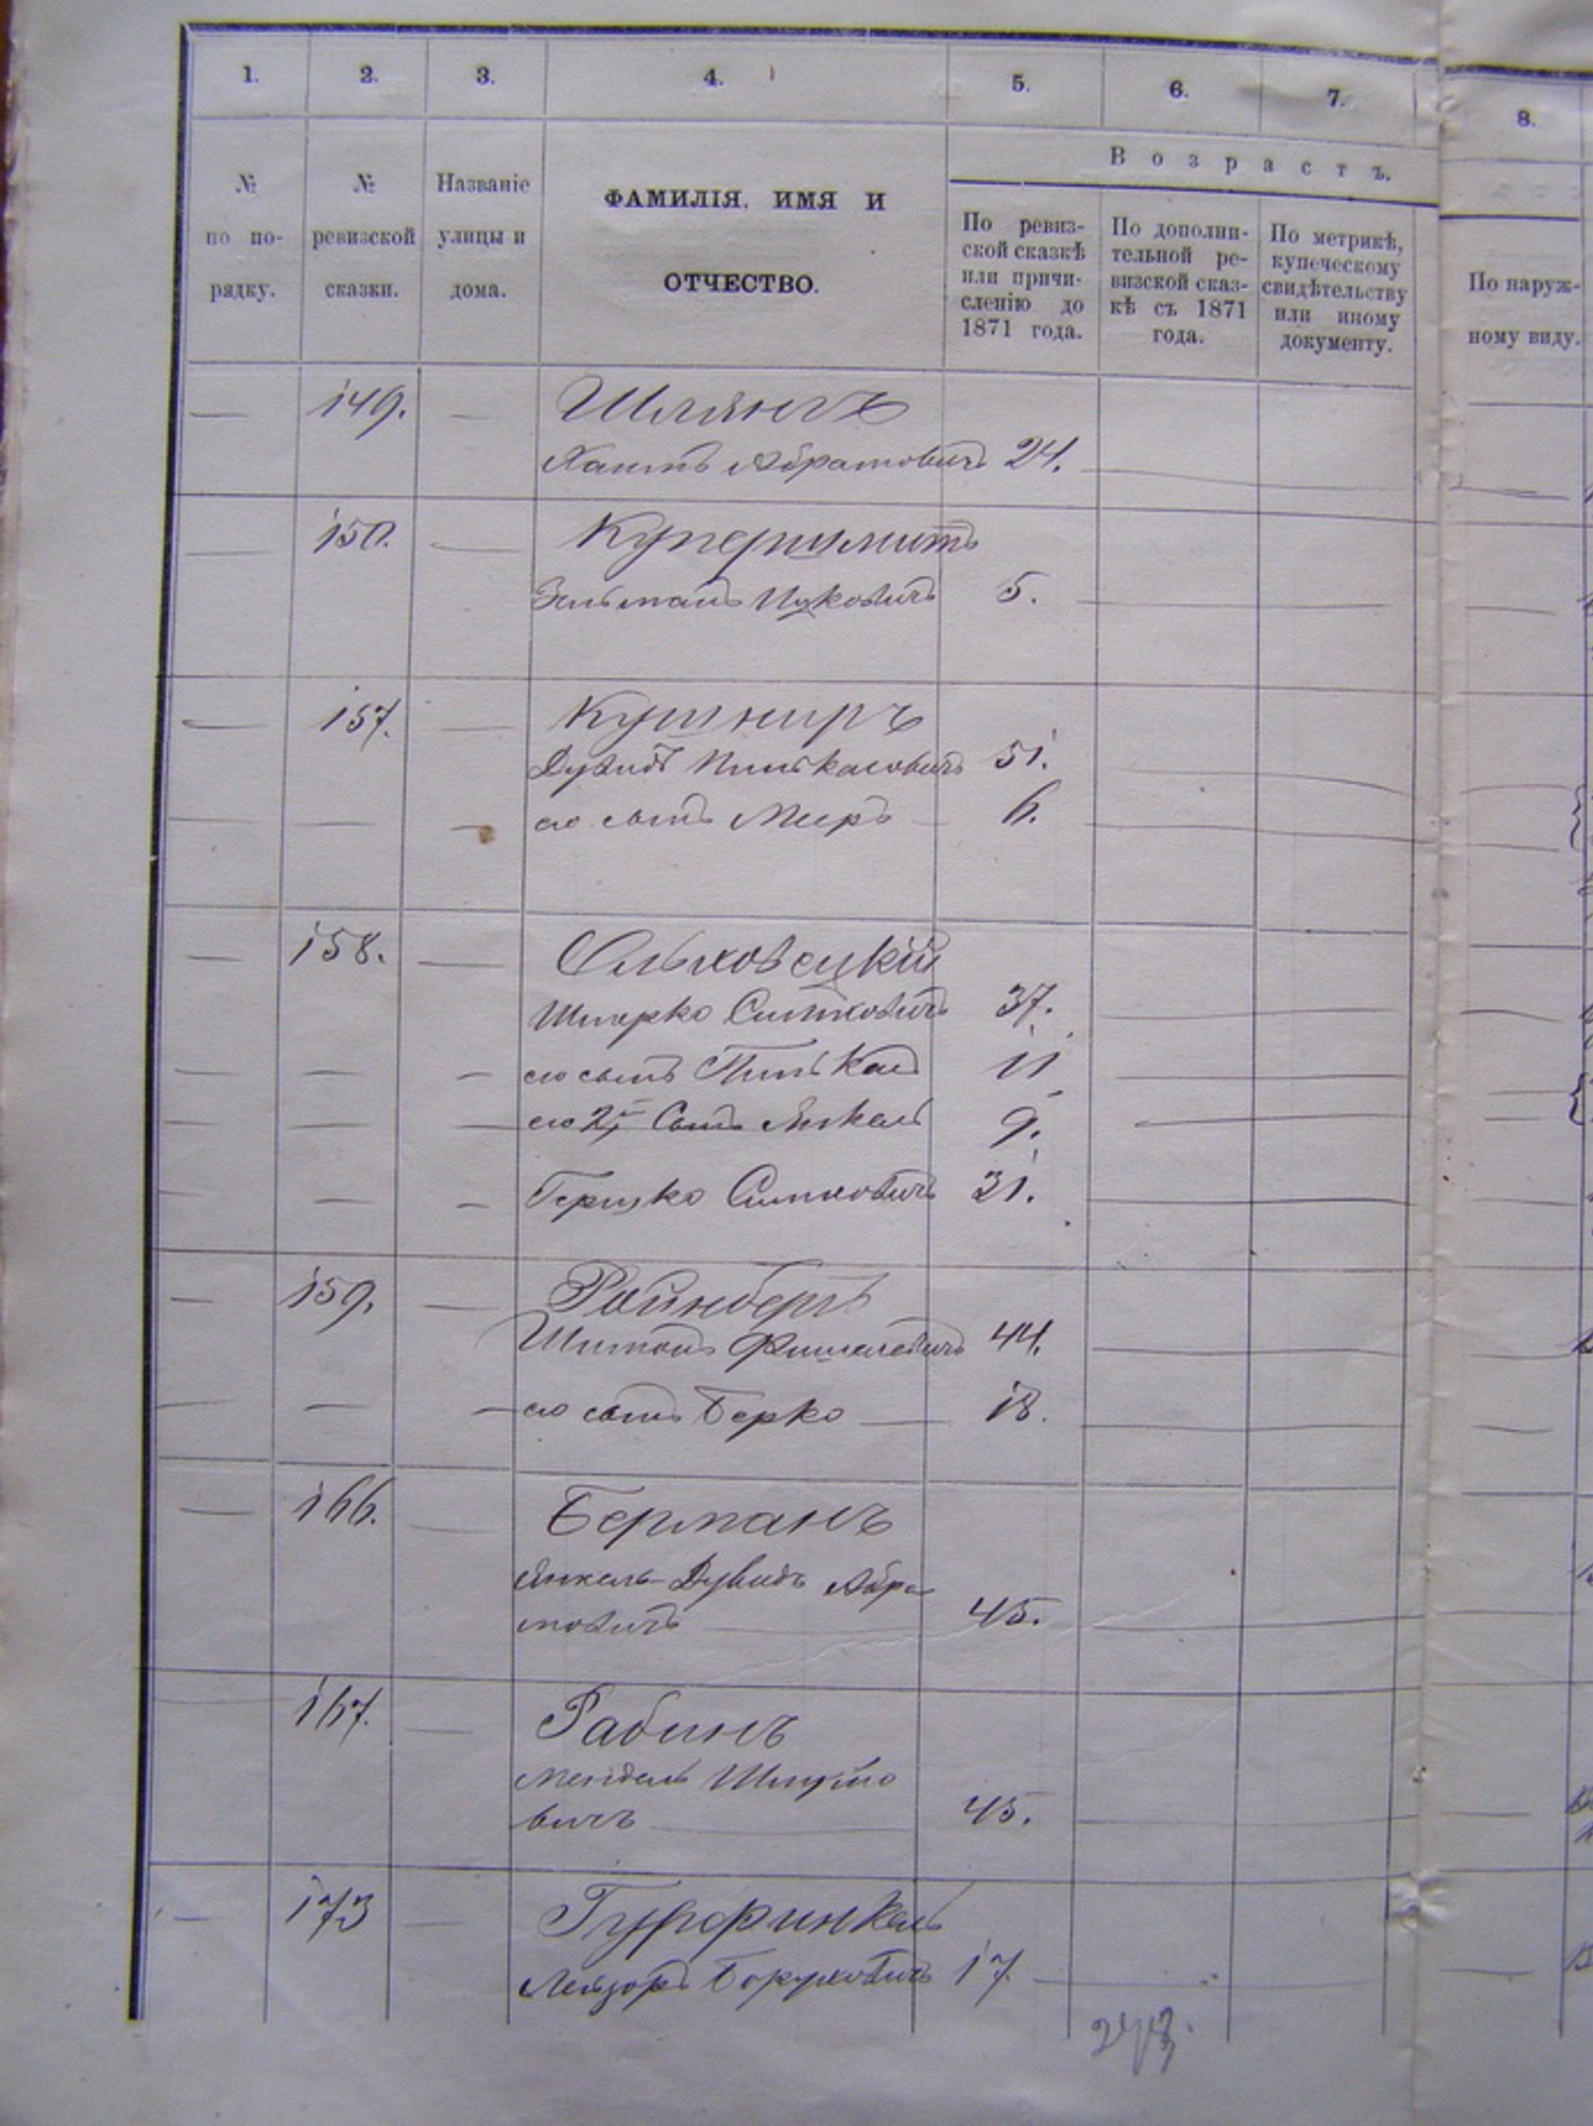 1. 2. 3. 4. 5. 6. 7. 8.
№ по по-рядку.
№ ревизской сказки.
Названіе улицы и дома.
ФАМИЛІЯ, ИМЯ И
ОТЧЕСТВО.
Возрастъ.
По ревиз-
ской сказкѣ
или причи-
сленію до
1871 года.
По дополни-
тельной ре-
визской сказ-
кѣ съ 1871
года.
По метрикѣ,
купеческому
свидѣтельству
или иному
документу.
По наруж-
ному виду.
149.
Хаимъ Абрамовичъ 24.
150. Купершмитъ
Зельманъ Ицковичъ 5.
157. Кушниръ
Дувидъ Пинькасовичъ 51.
его сынъ Меръ 6.
158. Ольховецкій
Шмерко Симховичъ 37.
его сынъ Пинькас 11
его 2й Сынъ Янкель 9.
Гершко Симховичъ 31.
159.Ройнбергъ
Шимонъ Фишелевичъ 44.
его сынъ Берко 18.
166. Берманъ
Янкель-Дувидъ Абра
мовичъ 45.
167. Рабинъ
Мендель Шмуйло
вичъ 45.
173 Гурфинкель
Лейзоръ Боруховичъ 17.